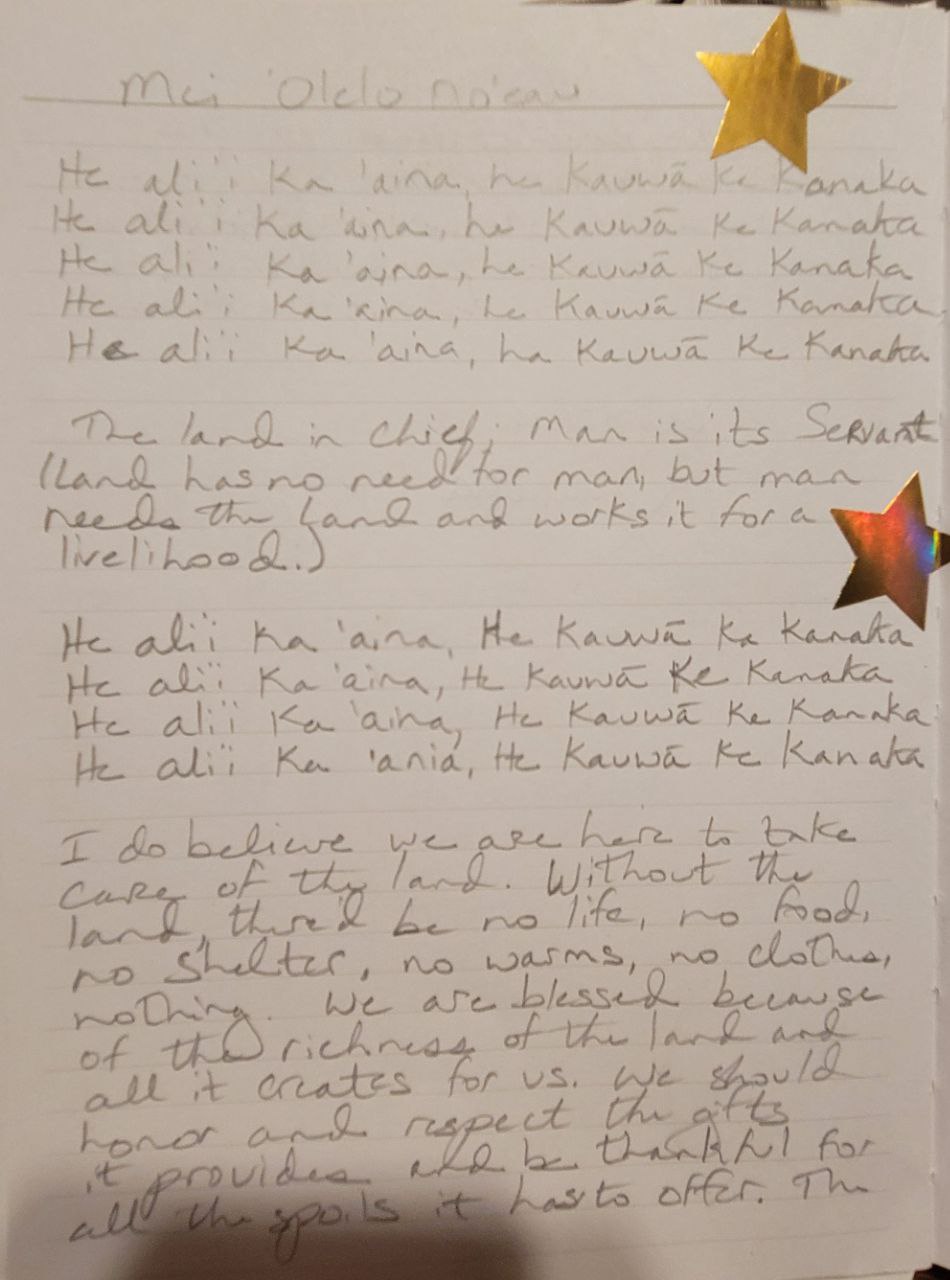 Mei 'Olelo No'eau
He ali'i Ka 'aina, he Kauwā Ke Kanaka
He ali'i Ka 'aina, he Kauwā Ke Kanaka
He ali'i Ka 'aina, he Kauwā Ke Kanaka
He ali'i Ka 'aina, he Kauwā Ke Kanaka
He ali'i Ka 'aina, ha Kauwā Ke Kanaka
The land in chief; Man is its Servant
(Land has no need for man, but man
needs the Land and works it for a
livelihood.)
He ali'i Ka 'aina, He Kauwā Ke Kanaka
He ali'i Ka 'aina, He Kauwā Ke Kanaka
He ali'i Ka 'aina, He Kauwā Ke Kanaka
He ali'i Ka 'ania, He Kauwā Ke Kanaka
I do believe we are here to take
care of the land. Without the
land, there'd be no life, no food,
no shelter, no warms, no clothes,
nothing. We are blessed because
of the richness of the land and
all it creates for us. We should
honor and respect the gifts
it provides and be thankful for
all the spoils it has to offer. The